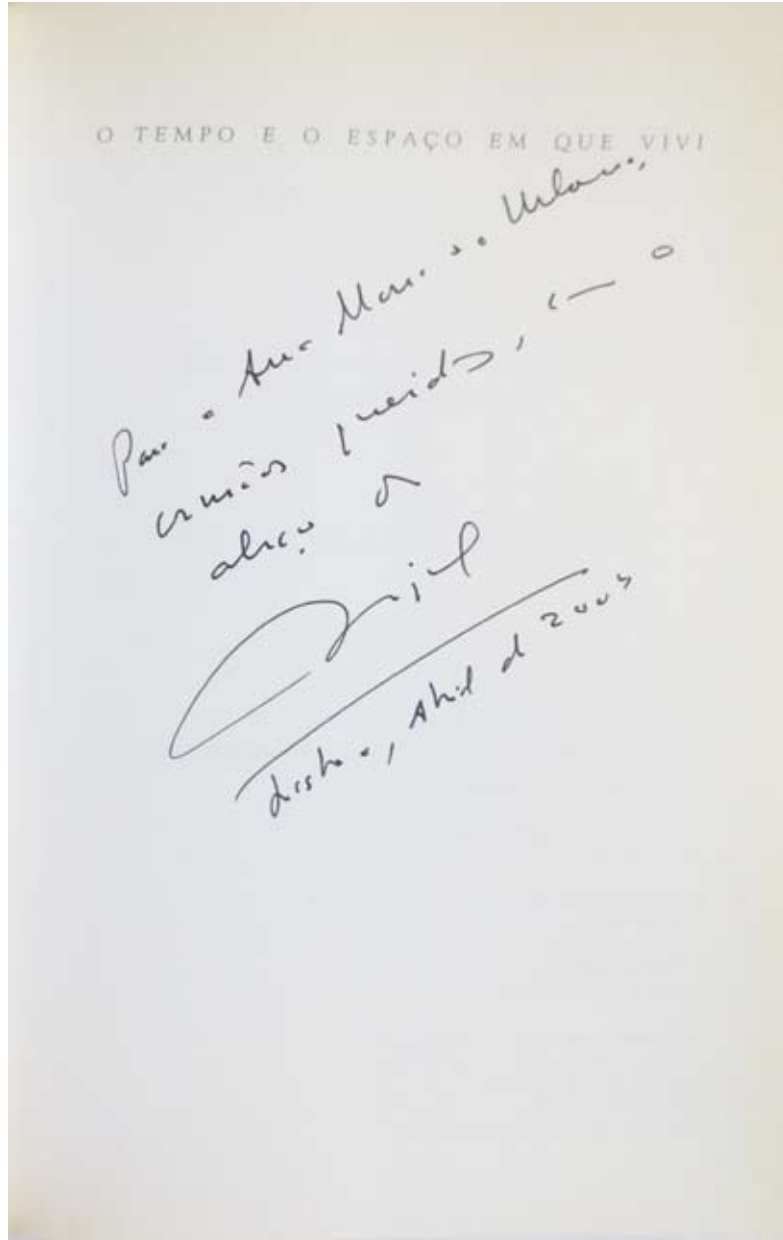 O TEMPO E O ESPAÇO EM QUE VIVI
Para a Ana Maria e o Urbano,
irmãos queridos, com o
abraço do
Lisboa, Abril de 2004